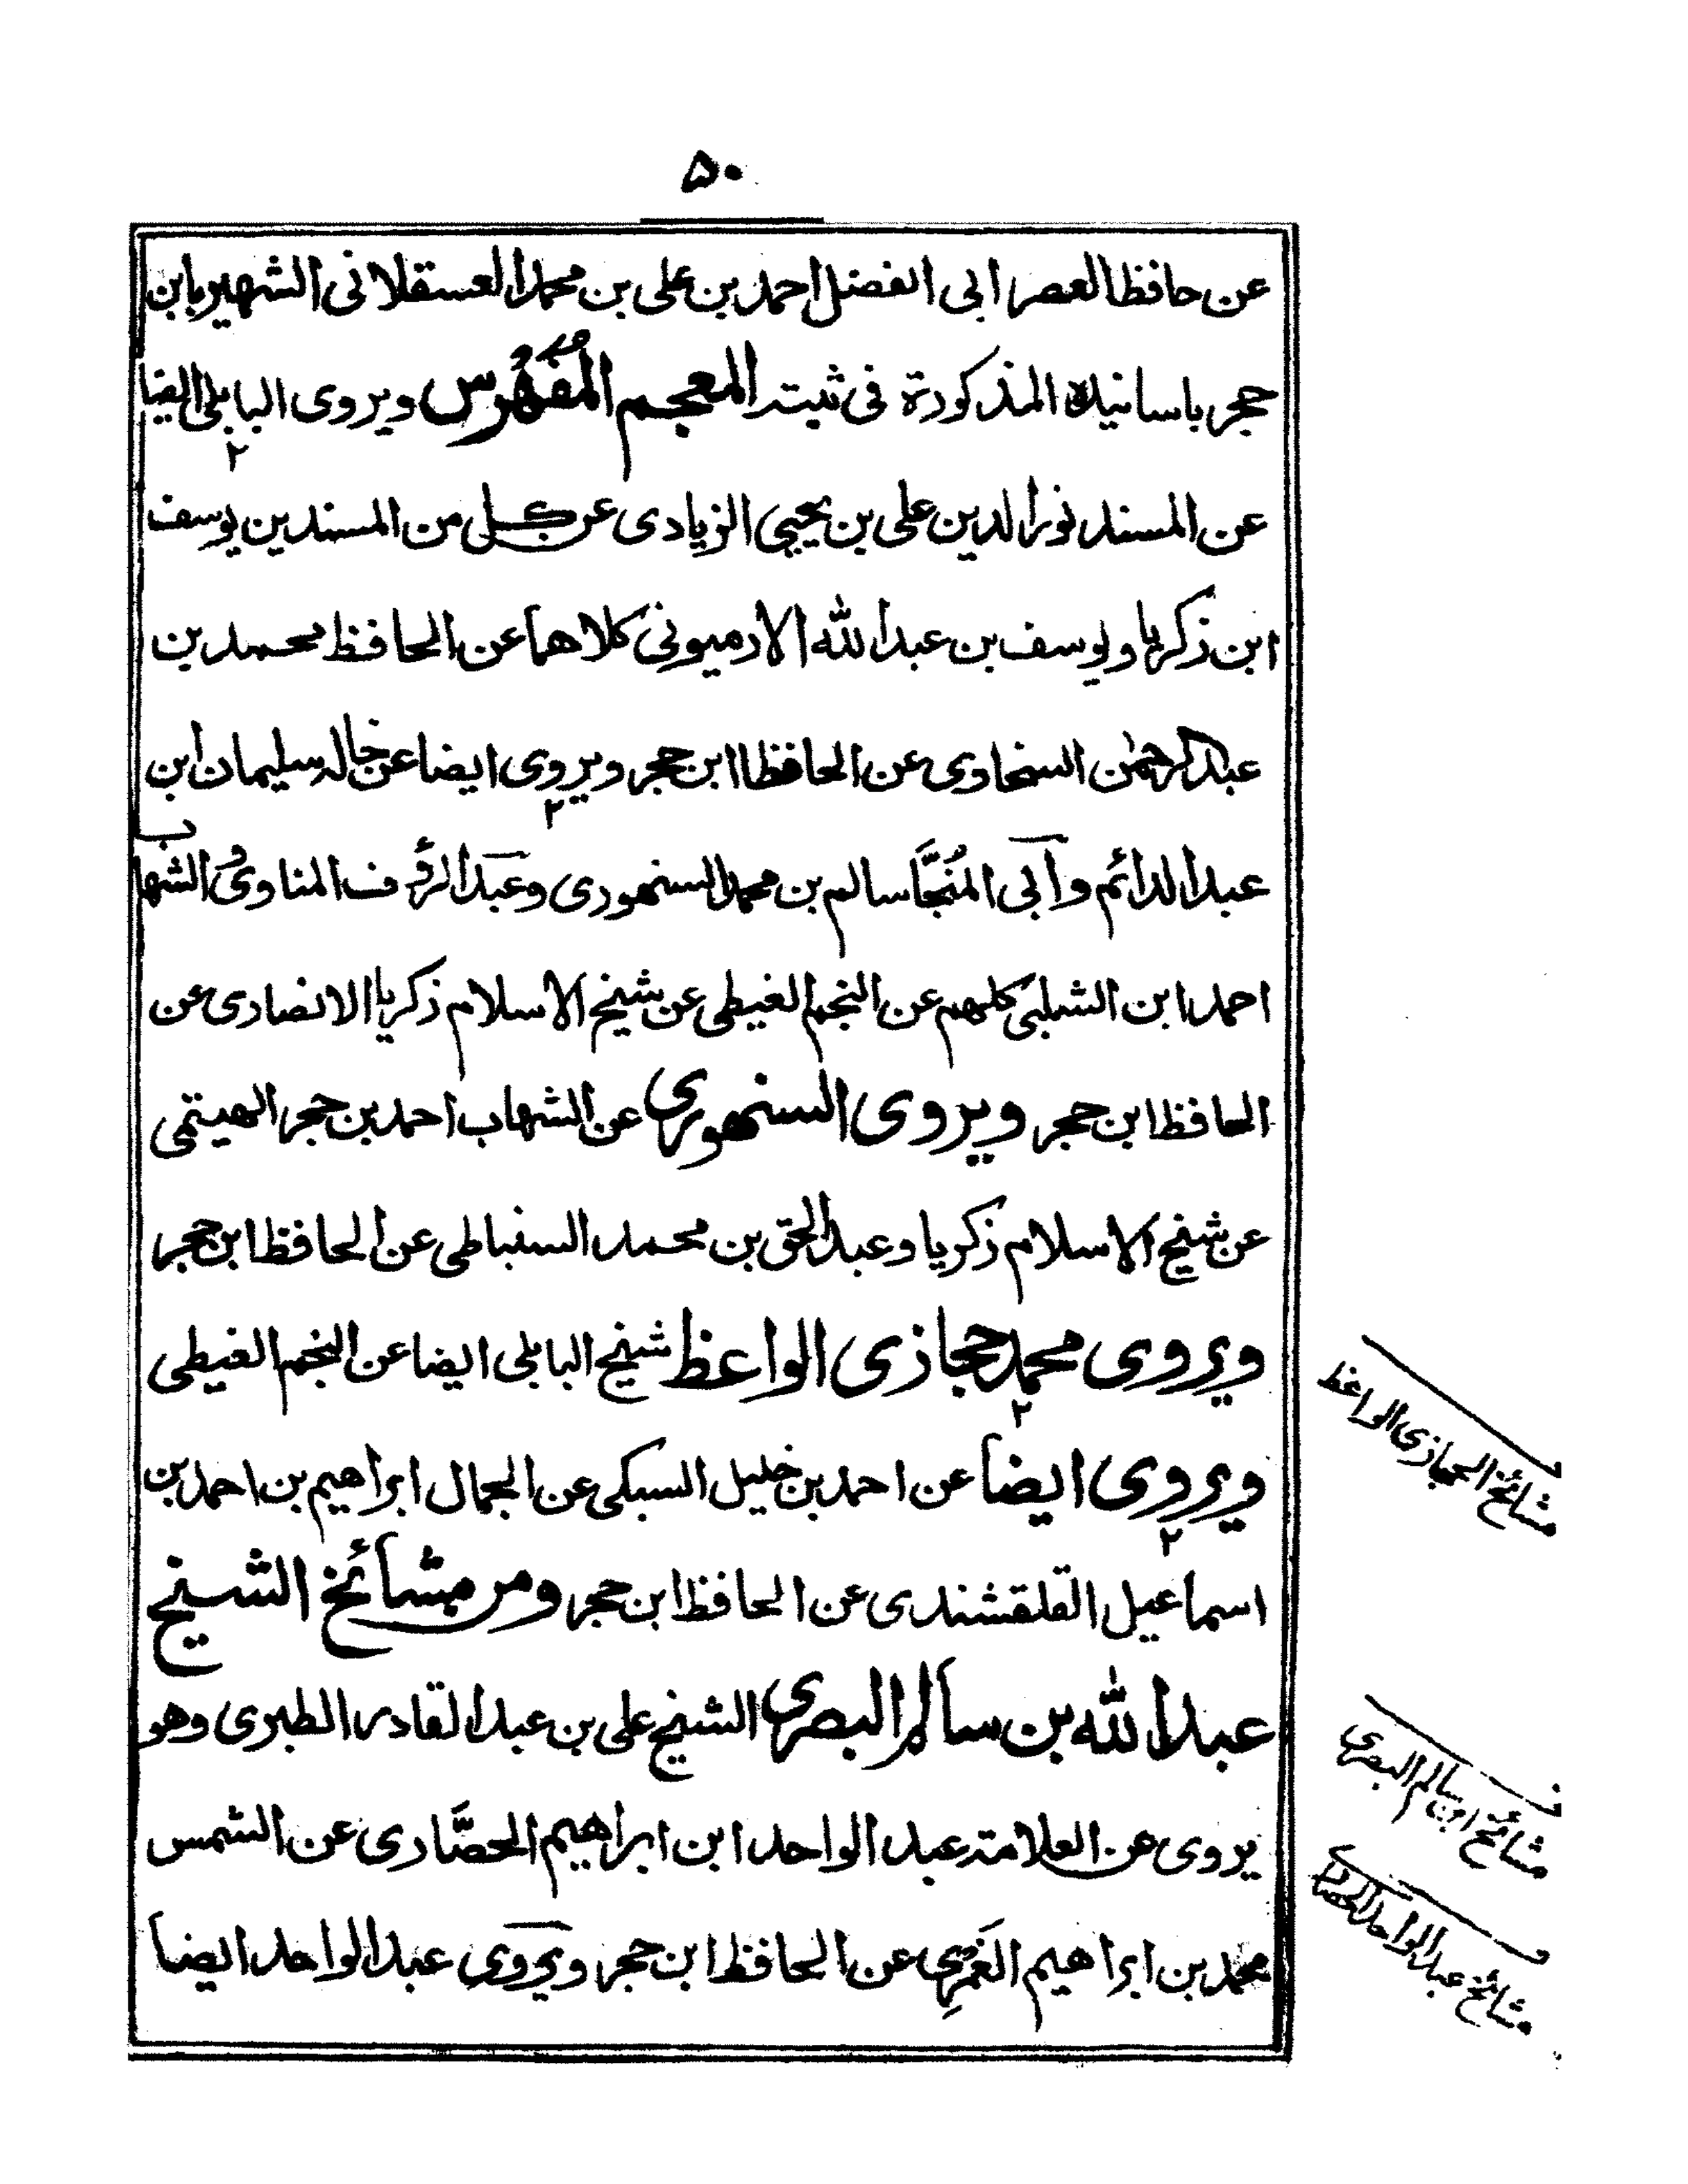 ۵۰
عن حافظ العصر ابى الفضل احمد بن على بن محمد العسقلانى الشهير بابن
حجر باسانيده المذكورة فى ثبته المعجم المُفَهْرس ويروى البابلى ايضا
عن المسند نور الدين على بن يحيى الزيادى عن كل من المسندين يوسف
ابن زكريا ويوسف بن عبد الله الارميونى كلاهما عن الحافظ محمد بن
عبد الرحمٰن السخاوى عن الحافظ ابن حجر ويروى ايضا عن خاله سليمان ابن
عبد الدائم وابى المُنَجَّا سالم بن محمد السنهورى وعبد الرؤف المناوى والشهاب
احمد ابن الشلبى كلهم عن النجم الغيطى عن شيخ الاسلام زكريا الانصارى عن
الحافظ ابن حجر ويروى السنهورى عن الشهاب احمد بن حجر الهيتمى
عن شيخ الاسلام زكريا وعبد الحق بن محمد السنباطى عن الحافظ ابن حجر
ويروى محمد حجازى الواعظ شيخ البابلى ايضا عن النجم الغيطى
ويروى ايضا عن احمد بن خليل السبكى عن الجمال ابراهيم بن احمد بن
اسماعيل القلقشندى عن الحافظ ابن حجر ومن مشائخ الشيخ
عبد الله بن سالم البصرى الشيخ على بن عبد القادر الطبرى وهو
يروى عن العلامة عبد الواحد ابن ابراهيم الحصَّارى عن الشمس
محمد بن ابراهيم الغَمْرِى عن الحافظ ابن حجر ويروى عبد الواحد ايضا
مشائخ الحجازى الواعظ
مشائخ ابن سالم البصرى
مشائخ عبد الواحد